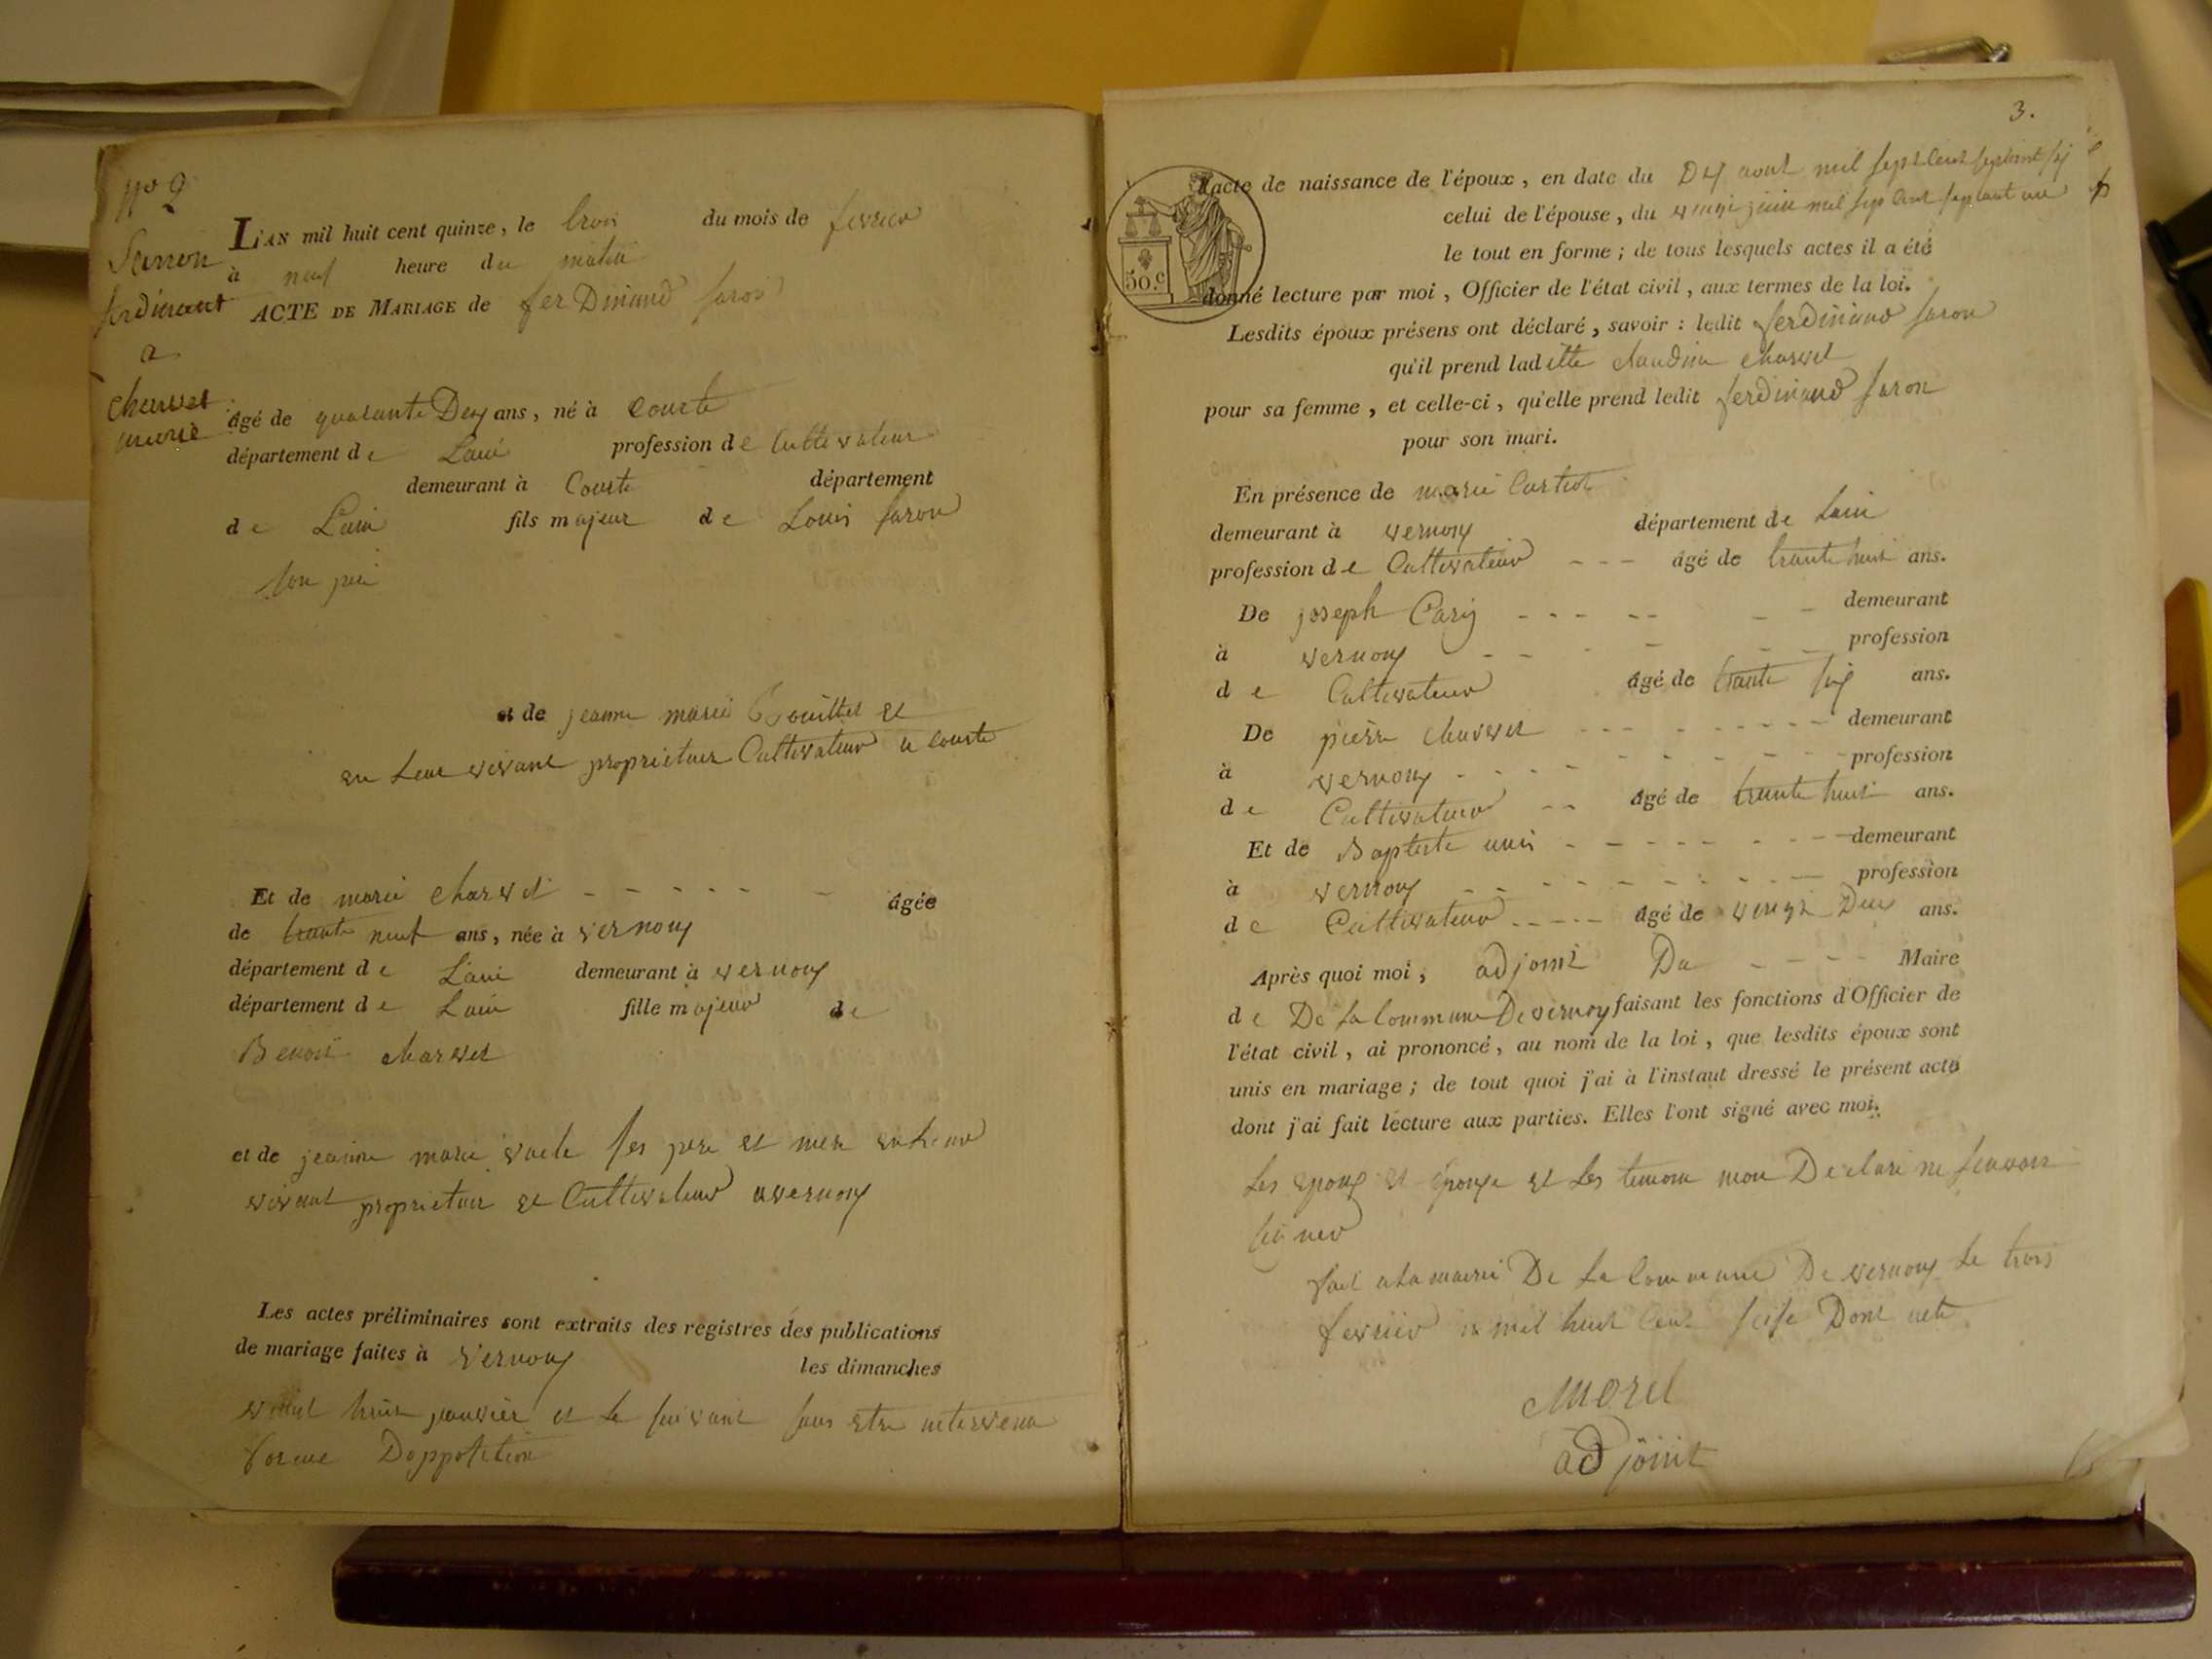 No 2
Sanon
ferdinant
a
Charvet
marie
L'AN mil huit cent quinze, le trois du mois de fevrier
à neuf heure du matin
ACTE DE MARIAGE de ferDinand saron
âgé de quarante Dex ans, né à Courte
département de Lain profession de Cultivateur
demeurant à Courte département
de Lain fils majeur de Louis saron
son peri
et de jeanne marie Bouillet et
en Leur vivant proprietaire Cultivateur a Courte
Et de marie Charvet âgée
de trante neuf ans, née à vernoux
département de Lain demeurant à vernoux
département de Lain fille majeur de
Benoit charvet
et de jeanne marie ses pere et mere en Leur
vivant proprietair et Cultivateur a vernoux
Les actes préliminaires sont extraits des registres des publications
de mariage faites à vernoux les dimanches
vaint huit janvier et le suivant sans etre intervenu
forme Dopposition
3.
50.c
l'acte de naissance de l'époux, en date du Dex aout mil sept Cent septant six
celui de l'épouse, du juin mil sept Cent septant
le tout en forme; de tous lesquels actes il a été
donné lecture par moi, Officier de l'état civil, aux termes de la loi.
Lesdits époux présens ont déclaré, savoir: ledit ferdinand saron
qu'il prend laditte claudine charvet
pour sa femme, et celle-ci, qu'elle prend ledit ferdinand saron
pour son mari.
En présence de marie
demeurant à vernoux département de Lain
profession de Cultivateur --- âgé de trante huit ans.
De joseph Cariy demeurant
à vernoux profession
de Cultivateur âgé de trante six ans.
De pierre charvet demeurant
à vernoux profession
de Cultivateur -- âgé de trante huit ans.
Et de Baptiste demeurant
à vernoux profession
de Cultivateur âgé de vingt Deux ans.
Après quoi moi, adjoint Du Maire
de De La Commune De vernoux faisant les fonctions d'Officier de
l'état civil, ai prononcé, au nom de la loi, que lesdits époux sont
unis en mariage; de tout quoi j'ai à l'instant dressé le présent acte
dont j'ai fait lecture aux parties. Elles l'ont signé avec moi.
Les epoux et epouxe et Les temoin mon Declare ne scavoir
signer
fait a La mairie De La Commune De vernoux Le trois
fevrier mil huit Cent seise Dont acte
Morel
adjoint